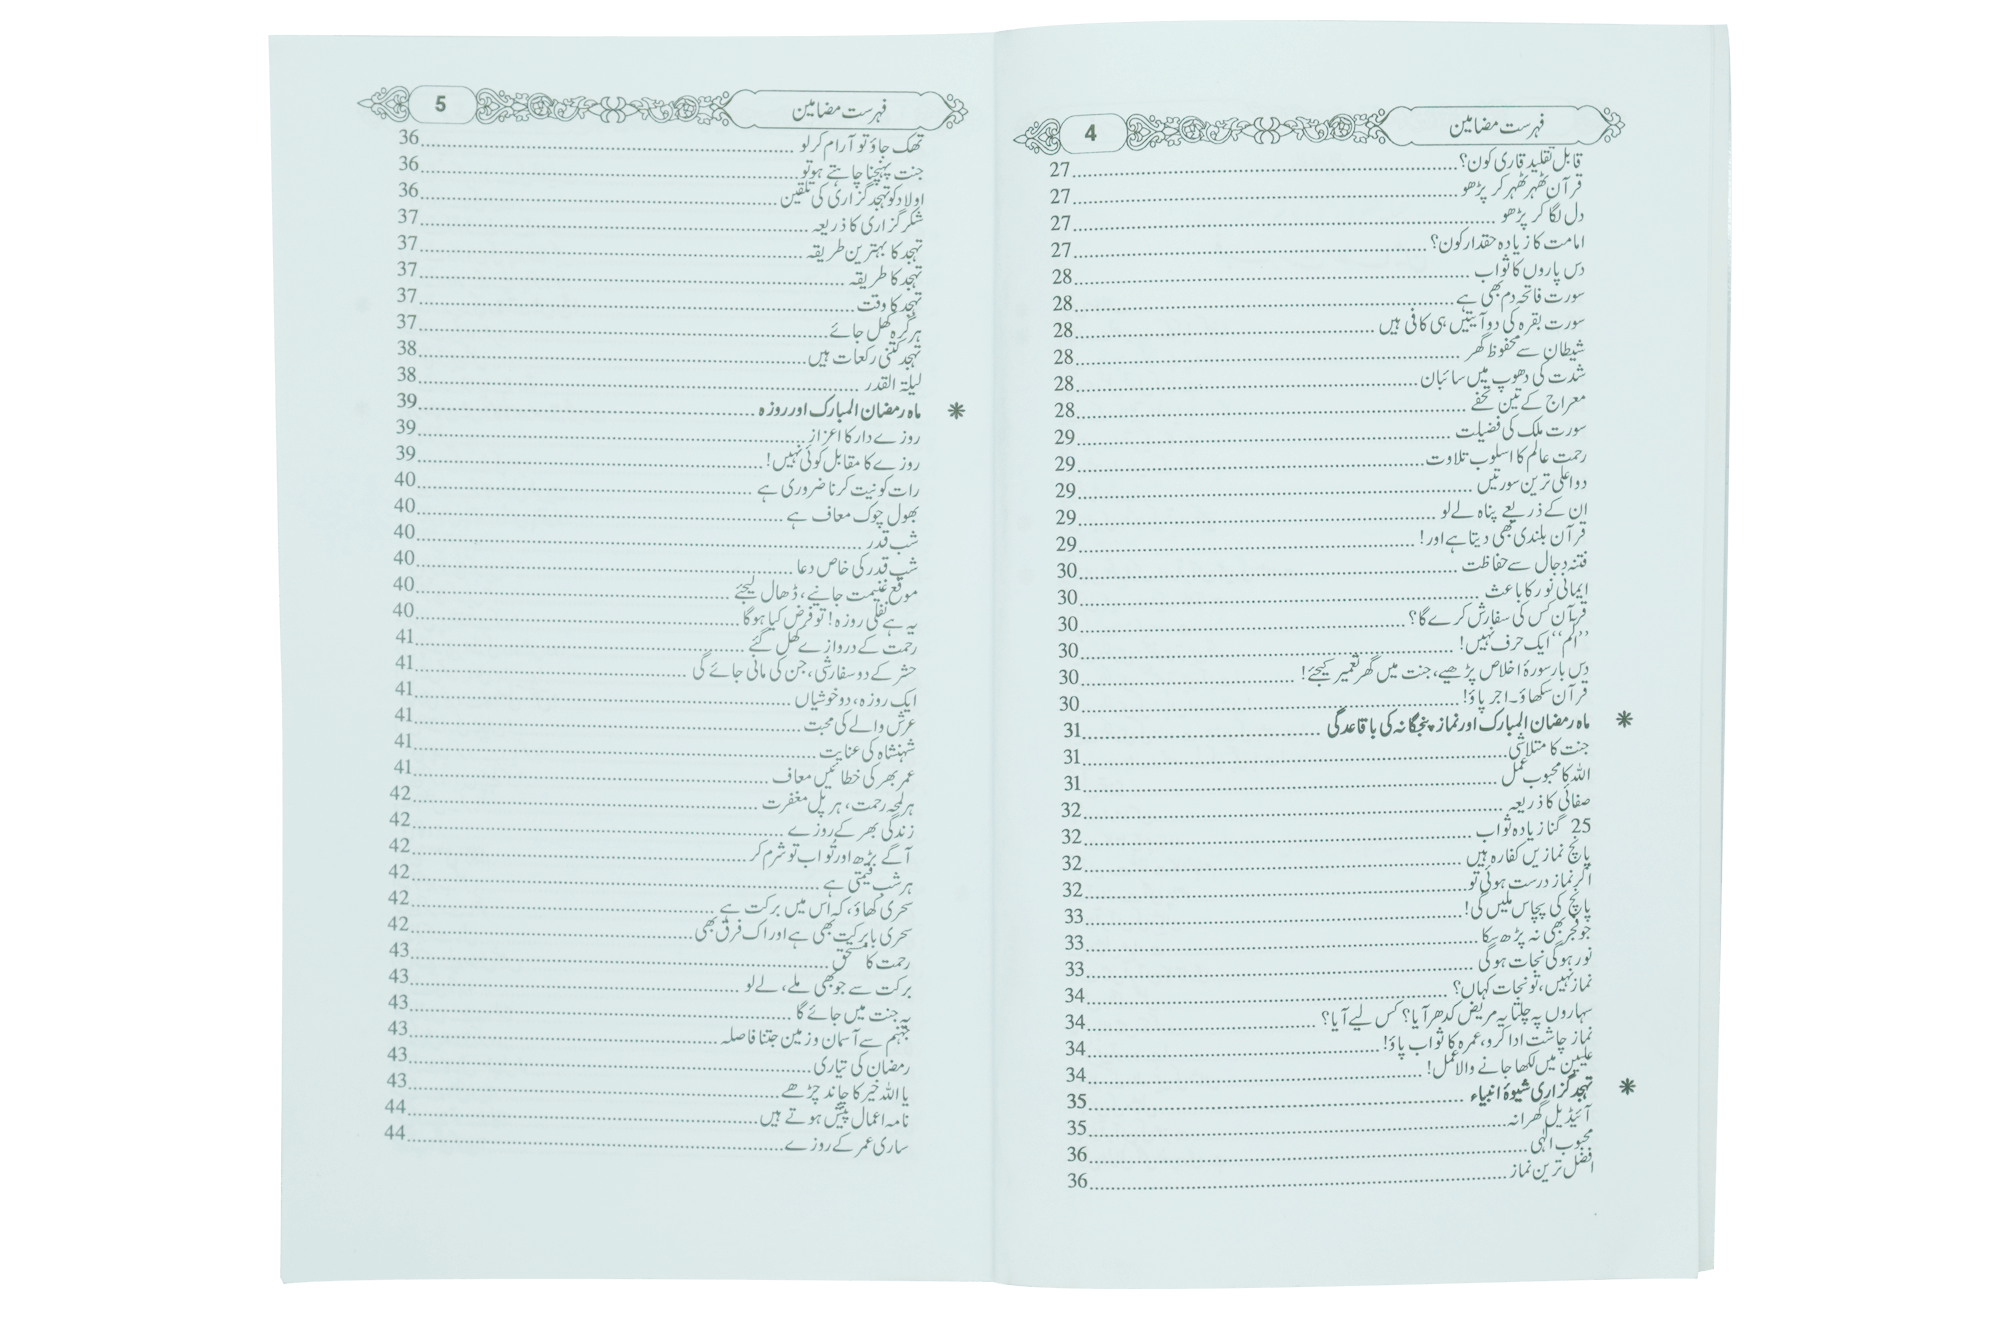 فہرست مضامین 4
قابل تقلید قاری کون؟ 27
قرآن ٹھہر ٹھہر کر پڑھو 27
دل لگا کر پڑھو 27
امامت کا زیادہ حقدار کون؟ 27
دس پاروں کا ثواب 28
سورت فاتحہ دم بھی ہے 28
سورت بقرہ کی دو آیتیں ہی کافی ہیں 28
شیطان سے محفوظ گھر 28
شدت کی دھوپ میں سائبان 28
معراج کے تین تحفے 28
سورت ملک کی فضیلت 29
رحمت عالم کا اسلوب تلاوت 29
دو اعلی ترین سورتیں 29
ان کے ذریعے پناہ لے لو 29
قرآن بلندی بھی دیتا ہے اور! 29
فتنہ دجال سے حفاظت 30
ایمانی نور کا باعث 30
قرآن کس کی سفارش کرے گا؟ 30
’’الم‘‘ ایک حرف نہیں! 30
دس بار سورۂ اخلاص پڑھیے، جنت میں گھر تعمیر کیجئے! 30
قرآن سکھاؤ۔ اجر پاؤ! 30
✳ ماہ رمضان المبارک اور نماز پنجگانہ کی باقاعدگی 31
جنت کا متلاشی 31
اللہ کا محبوب عمل 31
صفائی کا ذریعہ 32
25 گنا زیادہ ثواب 32
پانچ نمازیں کفارہ ہیں 32
اگر نماز درست ہوئی تو 32
پانچ کی پچاس ملیں گی! 33
جو فجر بھی نہ پڑھ سکا 33
نور ہوگی نجات ہوگی 33
نماز نہیں، تو نجات کہاں؟ 34
سہاروں پہ چلتا یہ مریض کدھر آیا؟ کس لیے آیا؟ 34
نماز چاشت ادا کرو، عمرہ کا ثواب پاؤ! 34
علیین میں لکھا جانے والا عمل! 34
✳ تہجد گزاری شیوۂ انبیاء 35
آئیڈیل گھرانہ 35
محبوب الٰہی 36
افضل ترین نماز 36
فہرست مضامین 5
تھک جاؤ تو آرام کر لو 36
جنت پہنچنا چاہتے ہو تو 36
اولاد کو تہجد گزاری کی تلقین 36
شکر گزاری کا ذریعہ 37
تہجد کا بہترین طریقہ 37
تہجد کا طریقہ 37
تہجد کا وقت 37
ہر گرہ کھل جائے 37
تہجد کتنی رکعات ہیں 38
لیلۃ القدر 38
✳ ماہ رمضان المبارک اور روزہ 39
روزے دار کا اعزاز 39
روزے کا مقابل کوئی نہیں! 39
رات کو نیت کرنا ضروری ہے 40
بھول چوک معاف ہے 40
شب قدر 40
شب قدر کی خاص دعا 40
موقع غنیمت جانیے، ڈھال لیجئے 40
یہ ہے نفلی روزہ! تو فرض کیا ہوگا 40
رحمت کے دروازے کھل گئے 41
حشر کے دو سفارشی، جن کی مانی جائے گی 41
ایک روزہ، دو خوشیاں 41
عرش والے کی محبت 41
شہنشاہ کی عنایت 41
عمر بھر کی خطائیں معاف 41
ہر لمحہ رحمت، ہر پل مغفرت 42
زندگی بھر کے روزے 42
آگے بڑھ اور تُو اب تو شرم کر 42
ہر شب قیمتی ہے 42
سحری کھاؤ، کہ اس میں برکت ہے 42
سحری بابرکت بھی ہے اور اک فرق بھی 42
رحمت کا مستحق 43
برکت سے جو بھی ملے، لے لو 43
یہ جنت میں جائے گا 43
جہنم سے آسمان و زمین جتنا فاصلہ 43
رمضان کی تیاری 43
یا اللہ خیر کا چاند چڑھے 43
نامہ اعمال پیش ہوتے ہیں 44
ساری عمر کے روزے 44